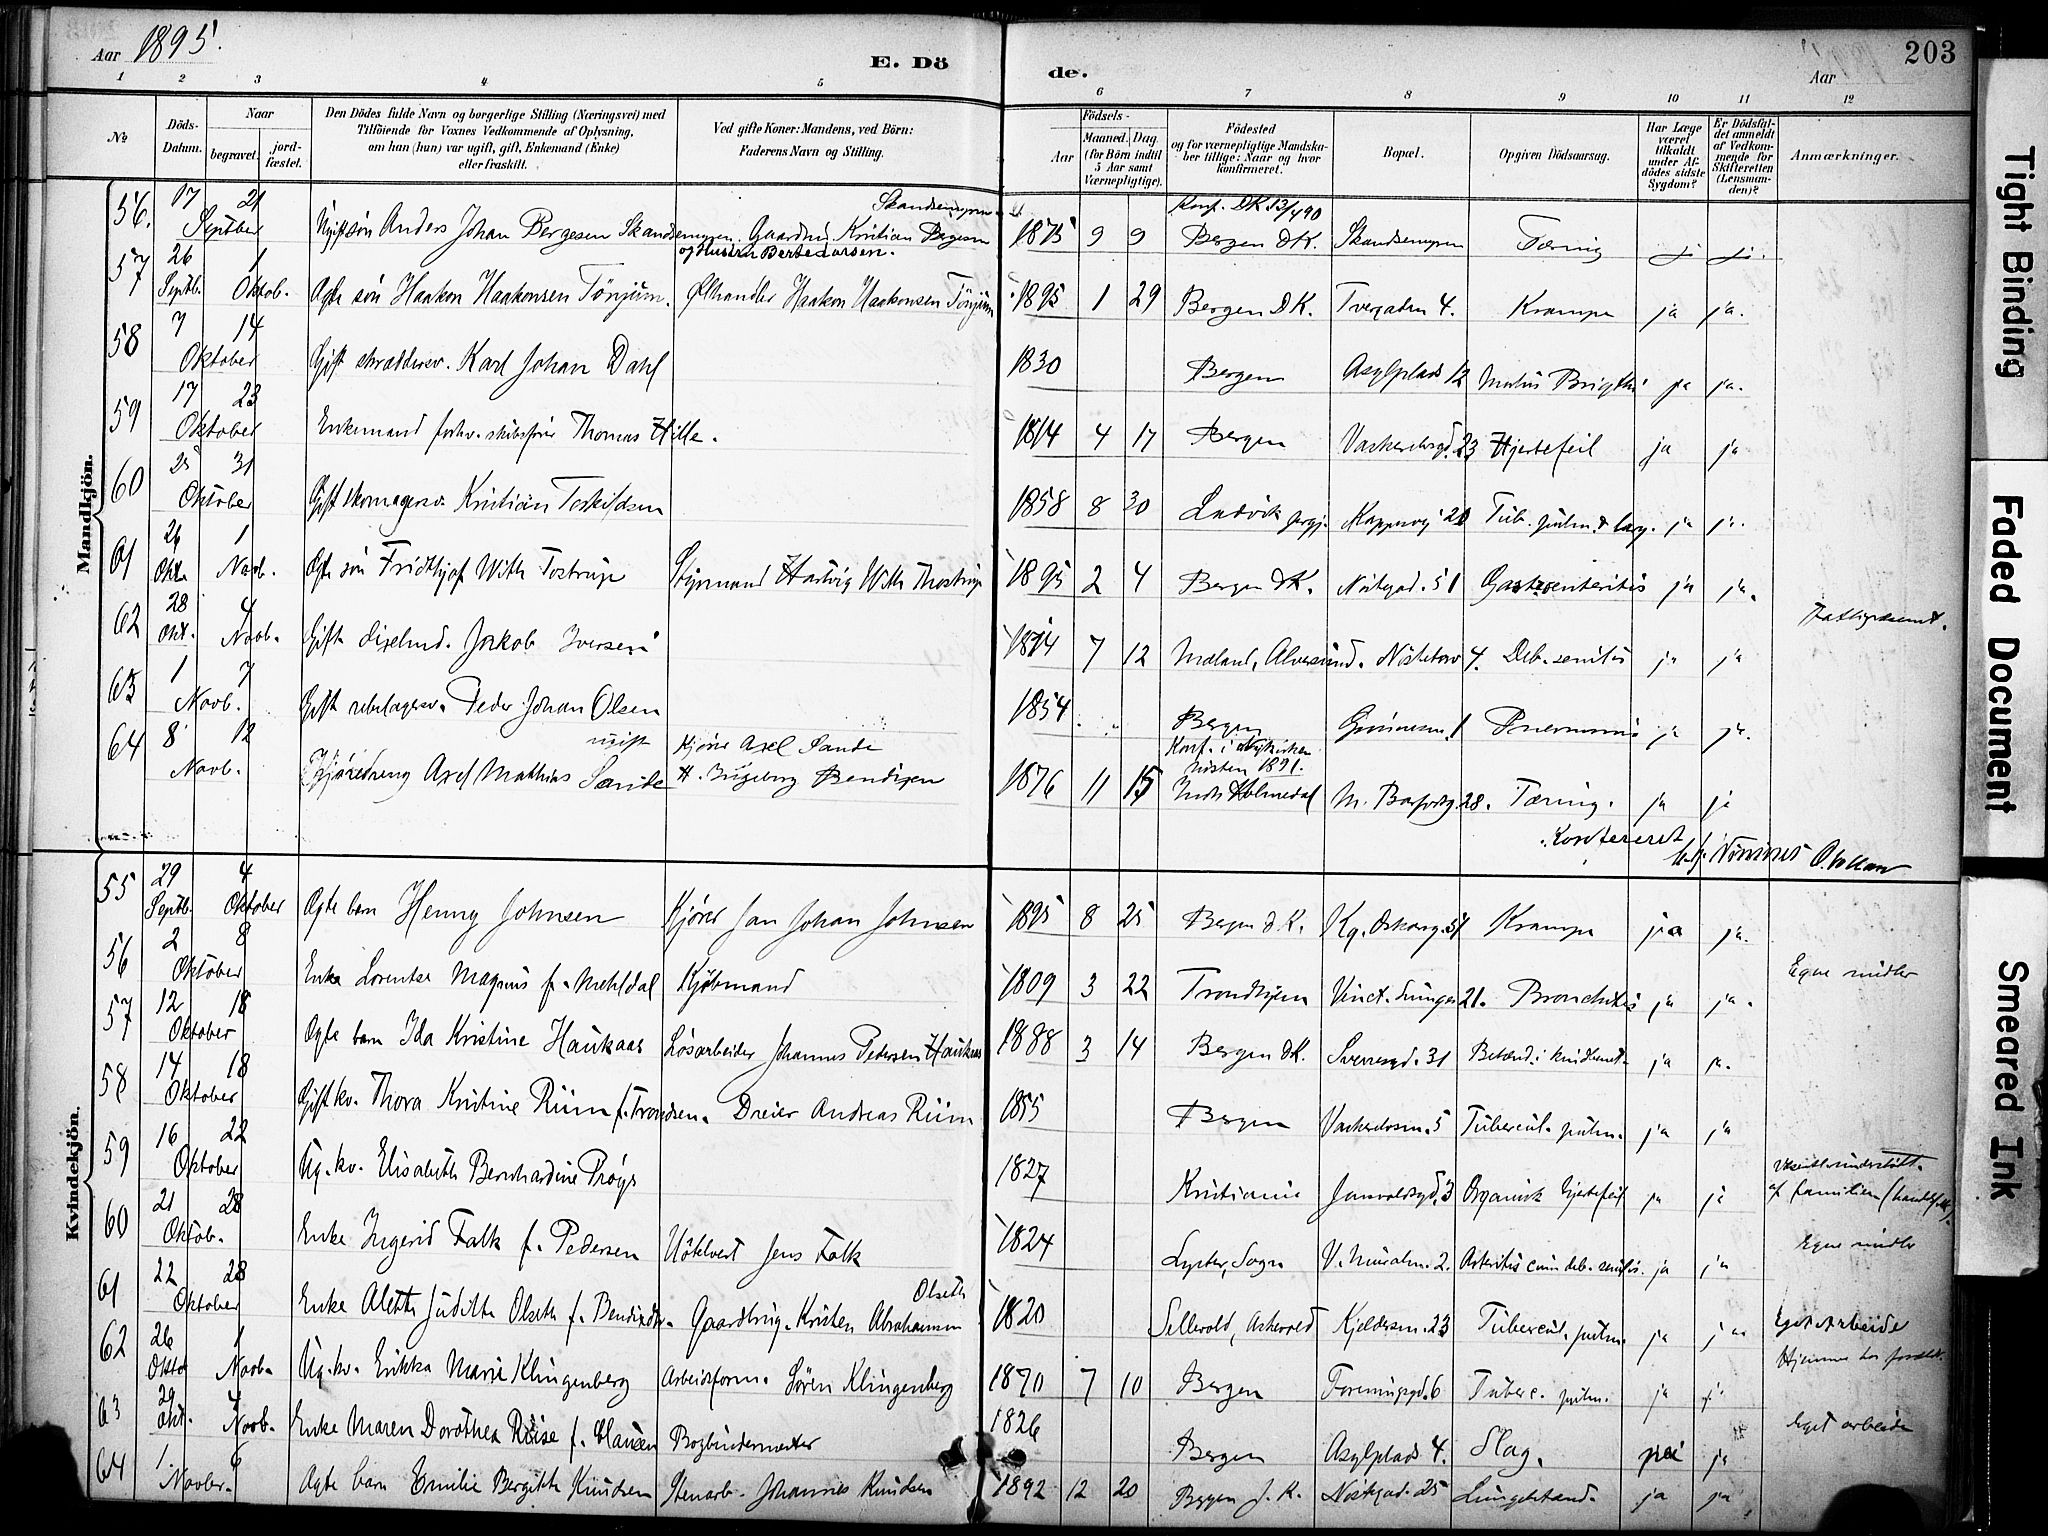 Aar 1895.
E. Dö
de.
Aar
203
1 2 3 4 5 6 7 8 9 10 11 12
No
Döds-Datum.
Naar
begravet.
jordfæstet.
Den Dödes fulde Navn og borgerlige Stilling (Næringsvei) med
Tilföiende for Voxnes Vedkommende af Oplysning,
om han (hun) var ugift, gift, Enkemand (Enke)
eller fraskilt.
Ved gifte Koner: Mandens, ved Börn:
Faderens Navn og Stilling.
Födsels-
Aar
Maaned. Dag.
(for Börn indtil
5 Aar samt
Værnepligtige).
Födested
og for værnepligtige Mandska-
ber tillige: Naar og hvor
konfirmeret.
Bopæl.
Opgiven Dödsaarsag.
Har Læge
været
tilkaldt
under Af-
dödes sidste
Sygdom?
Er Dödsfal-
det anmeldt
af Vedkom-
mende for
Skifteretten
(Lensman-
den)?
Anmærkninger.
Mandkjön.
56. 17 September 21 Anders Johan Bergesen Skandsemyren. Gaardbr. Kristian Bergesen 1875 9 9 Konf. DK 13/4 90 Bergen DK. Skandsemyren Tæring
57 26 Septb. 1 Oktob. Ægte søn Haakon Haakonsen Tönjum. Ølhandler Haakon Haakonsen Tönjum 1895 1 29 Bergen DK. Tvergaden 4. Krampe ja ja.
58 7 14 Oktober Gift skræddersv. Karl Johan Dahl 1830 Bergen Asylplads 12 Morbus Brightii ja ja.
59 17 23 Oktober Enkemand forhv. skibsfører Thomas Hille. 1814 4 17 Bergen 23 Hjertefeil ja ja
60 25 31 Oktober Gift skomagersv. Kristian Terkildsen 1858 8 30 Ladvik 20 Tub. pulm. & lary. ja ja.
61 26 Okt. 1 Novb. Ægte søn Fridthjof With Tostrup Styrmand Hartvig With Thostrup 1895 2 4 Bergen DK. Nöstegad. 51 Gastroenteritis ja ja.
62 28 Okt. 4 Novb. Gift Jakob Iversen 1814 7 12 Alversund. Nöstetorv 4. Deb. senilis ja ja
63 1 7 Novb. Gift Peder Johan Olsen 1854 Bergen 1 Pneumoni ja ja.
64 8 12 Novb. ugift Kjøredreng Axel Mathias Sande Kjører Axel Sande H. Ingeborg Bendixen 1876 11 15 Konf. i Nykirken høsten 1891. Indre Holmedal 28. Tæring. ja ja
Konfereret
Kvindekjön.
55 29 Septb. 4 Oktober Ægte barn Henny Johnsen Kjører Jan Johan Johnsen 1895 8 25 Bergen DK. Kg. Oskarsg. 51 Krampe ja ja.
56 2 8 Oktober Enke Lorentze Magnus f. Mehldal Kjøbmand 1809 3 22 Trondhjem 21. Bronchitis ja ja. Egne midler
57 12 18 Oktober Ægte barn Ida Kristine Haukaas Løsarbeider Johannes Pedersen Haukaas 1888 3 14 Bergen DK. Sverresgd. 31 ja ja.
58 14 18 Oktober Gift kv. Thora Kristine Riim f. Trondsen. Dreier Andreas Riim 1855 Bergen 5 Tubercul. pulm. ja ja
59 16 22 Oktober Ug. kv. Elisabeth Bernhardine Prøys 1827 Kristiania 3 Organisk hjertefeil ja ja af familien
60 21 28 Oktob. Enke Ingerid Falk f. Pedersen Jens Falk 1824 Lyster, Sogn V. Muralm. 2. Arteritis cum deb. senilis. ja ja Egne midler
61 22 28 Oktober Enke Alette Juditte Olseth f. Gaardbrug. Kristen Abrahamsen Olseth 1820 Askevold Kjeldersm. 23 Tubercul. pulm. ja ja Eget arbeide
62 26 Oktb 1 Novb. Ug. kv. Erikka Marie Klingenberg Arbeidsform. Sören Klingenberg 1870 7 10 Bergen Foreningsgd. 6 Tuberc. pulm. ja ja Hjemme hos foræld.
63 29 Okt. 4 Novb. Enke Maren Dorothea Riise f. Clausen Bogbindermester 1826 Bergen Asylplads 4. Slag. ja Eget arbeide
64 1. 6 Novber. Ægte barn Emilie Bergitte Knudsen Stenarb. Johannes Knudsen 1892 12 20 Bergen J. K. Nöstegad. 25 Lungebetænd. ja ja
Tight Binding
Faded Document
Smeared Ink